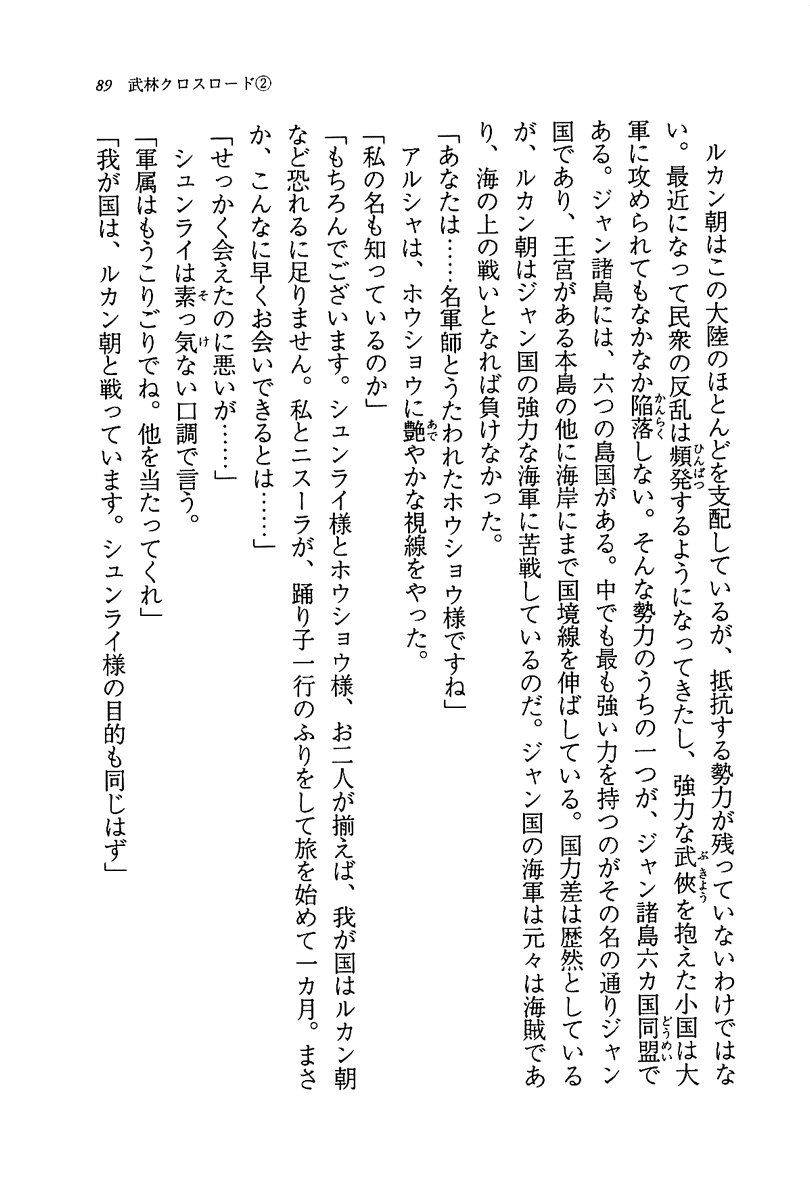 89 武林クロスロード②
　ルカン朝はこの大陸のほとんどを支配しているが、抵抗する勢力が残っていないわけではな
い。最近になって民衆の反乱は頻発するようになってきたし、強力な武俠を抱えた小国は大
軍に攻められてもなかなか陥落しない。そんな勢力のうちの一つが、ジャン諸島六カ国同盟で
ある。ジャン諸島には、六つの島国がある。中でも最も強い力を持つのがその名の通りジャン
国であり、王宮がある本島の他に海岸にまで国境線を伸ばしている。国力差は歴然としている
が、ルカン朝はジャン国の強力な海軍に苦戦しているのだ。ジャン国の海軍は元々は海賊であ
り、海の上の戦いとなれば負けなかった。
「あなたは……名軍師とうたわれたホウショウ様ですね」
　アルシャは、ホウショウに艶やかな視線をやった。
「私の名も知っているのか」
「もちろんでございます。シュンライ様とホウショウ様、お二人が揃えば、我が国はルカン朝
など恐れるに足りません。私とニスーラが、踊り子一行のふりをして旅を始めて一カ月。まさ
か、こんなに早くお会いできるとは……」
「せっかく会えたのに悪いが……」
　シュンライは素っ気ない口調で言う。
「軍属はもうこりごりでね。他を当たってくれ」
「我が国は、ルカン朝と戦っています。シュンライ様の目的も同じはず」